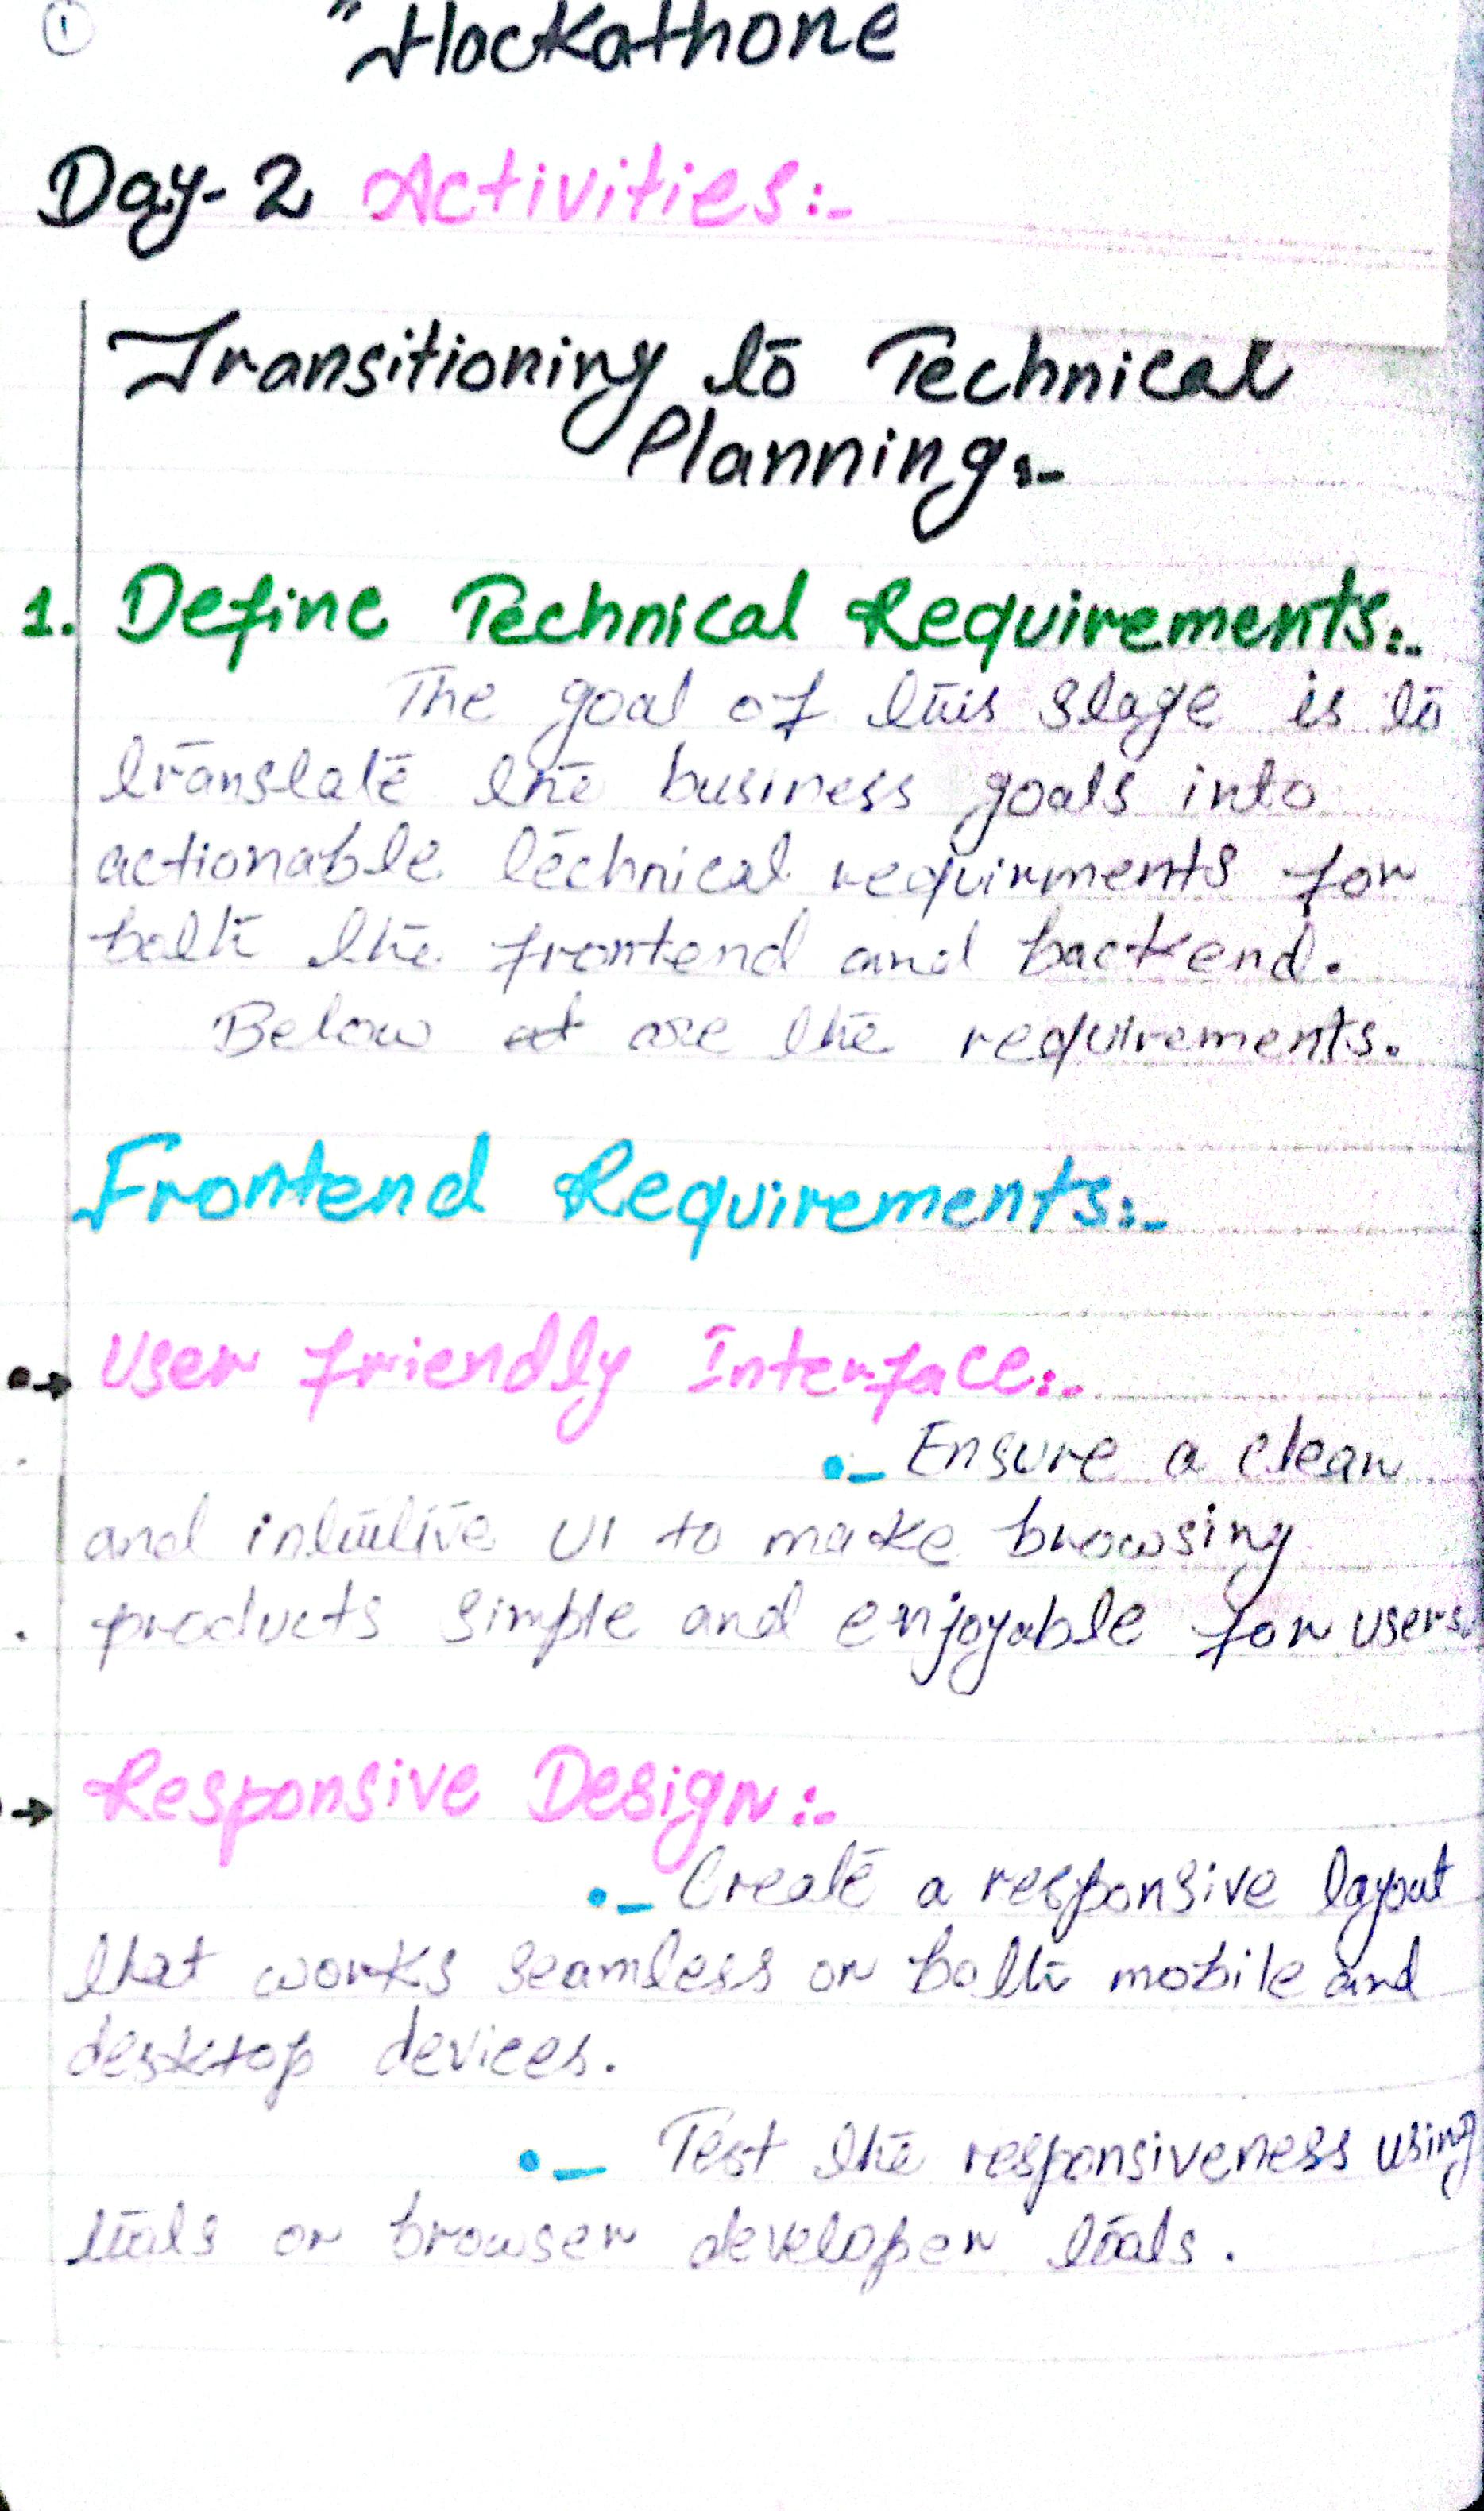 1
"Hackathone
Day-2 Activities:-
Transitioning to Technical
Planning:-
1. Define Technical Requirements:-
The goal of this stage is to
translate the business goals into
actionable technical requirments for
both the frontend and backend.
Below at are the requirements.
Frontend Requirements:-
User friendly Interface:-
•- Ensure a clean
and intuitive UI to make browsing
products simple and enjoyable for users.
→ Responsive Design:-
•- Create a responsive layout
that works seamless on both mobile and
desktop devices.
•- Test the responsiveness using
tools or browser developer tools.